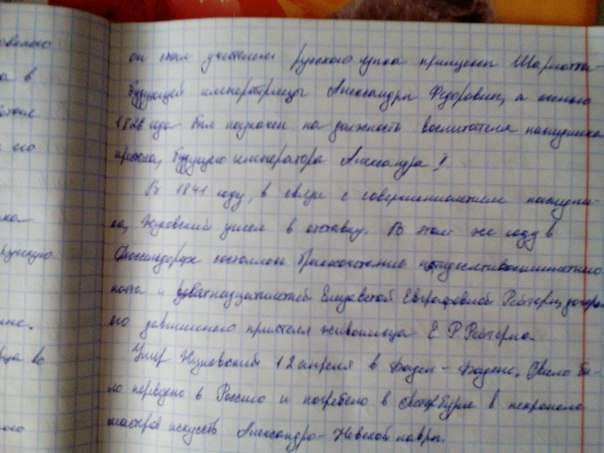 он стал учителем русского языка принцессы Шарлотты
будующей императрицы Александры Фёдоровны, а осенью
1826 года был назначен на должность воспитателя наследника
престола, будущего императора Александра II
В 1841 году, в связи с совершеннолетием наследни-
ка, Жуковский ушел в отставку. В этом же году в
Дюссендорфе состоялось бракосочетание пятидесятивосьмилетнего
поэта и девятнадцатилетней Елизаветой Евграфовной Рейтерн, дочерью
его давнишнего приятеля живописца Е. Р. Рейтерна.
Умер Жуковский 12 апреля в Баден-Бадене. Тело бы-
ло перевезено в Россию и погребено в Петербурге в некрополе
мастеров искусств Александро-Невской лавры.